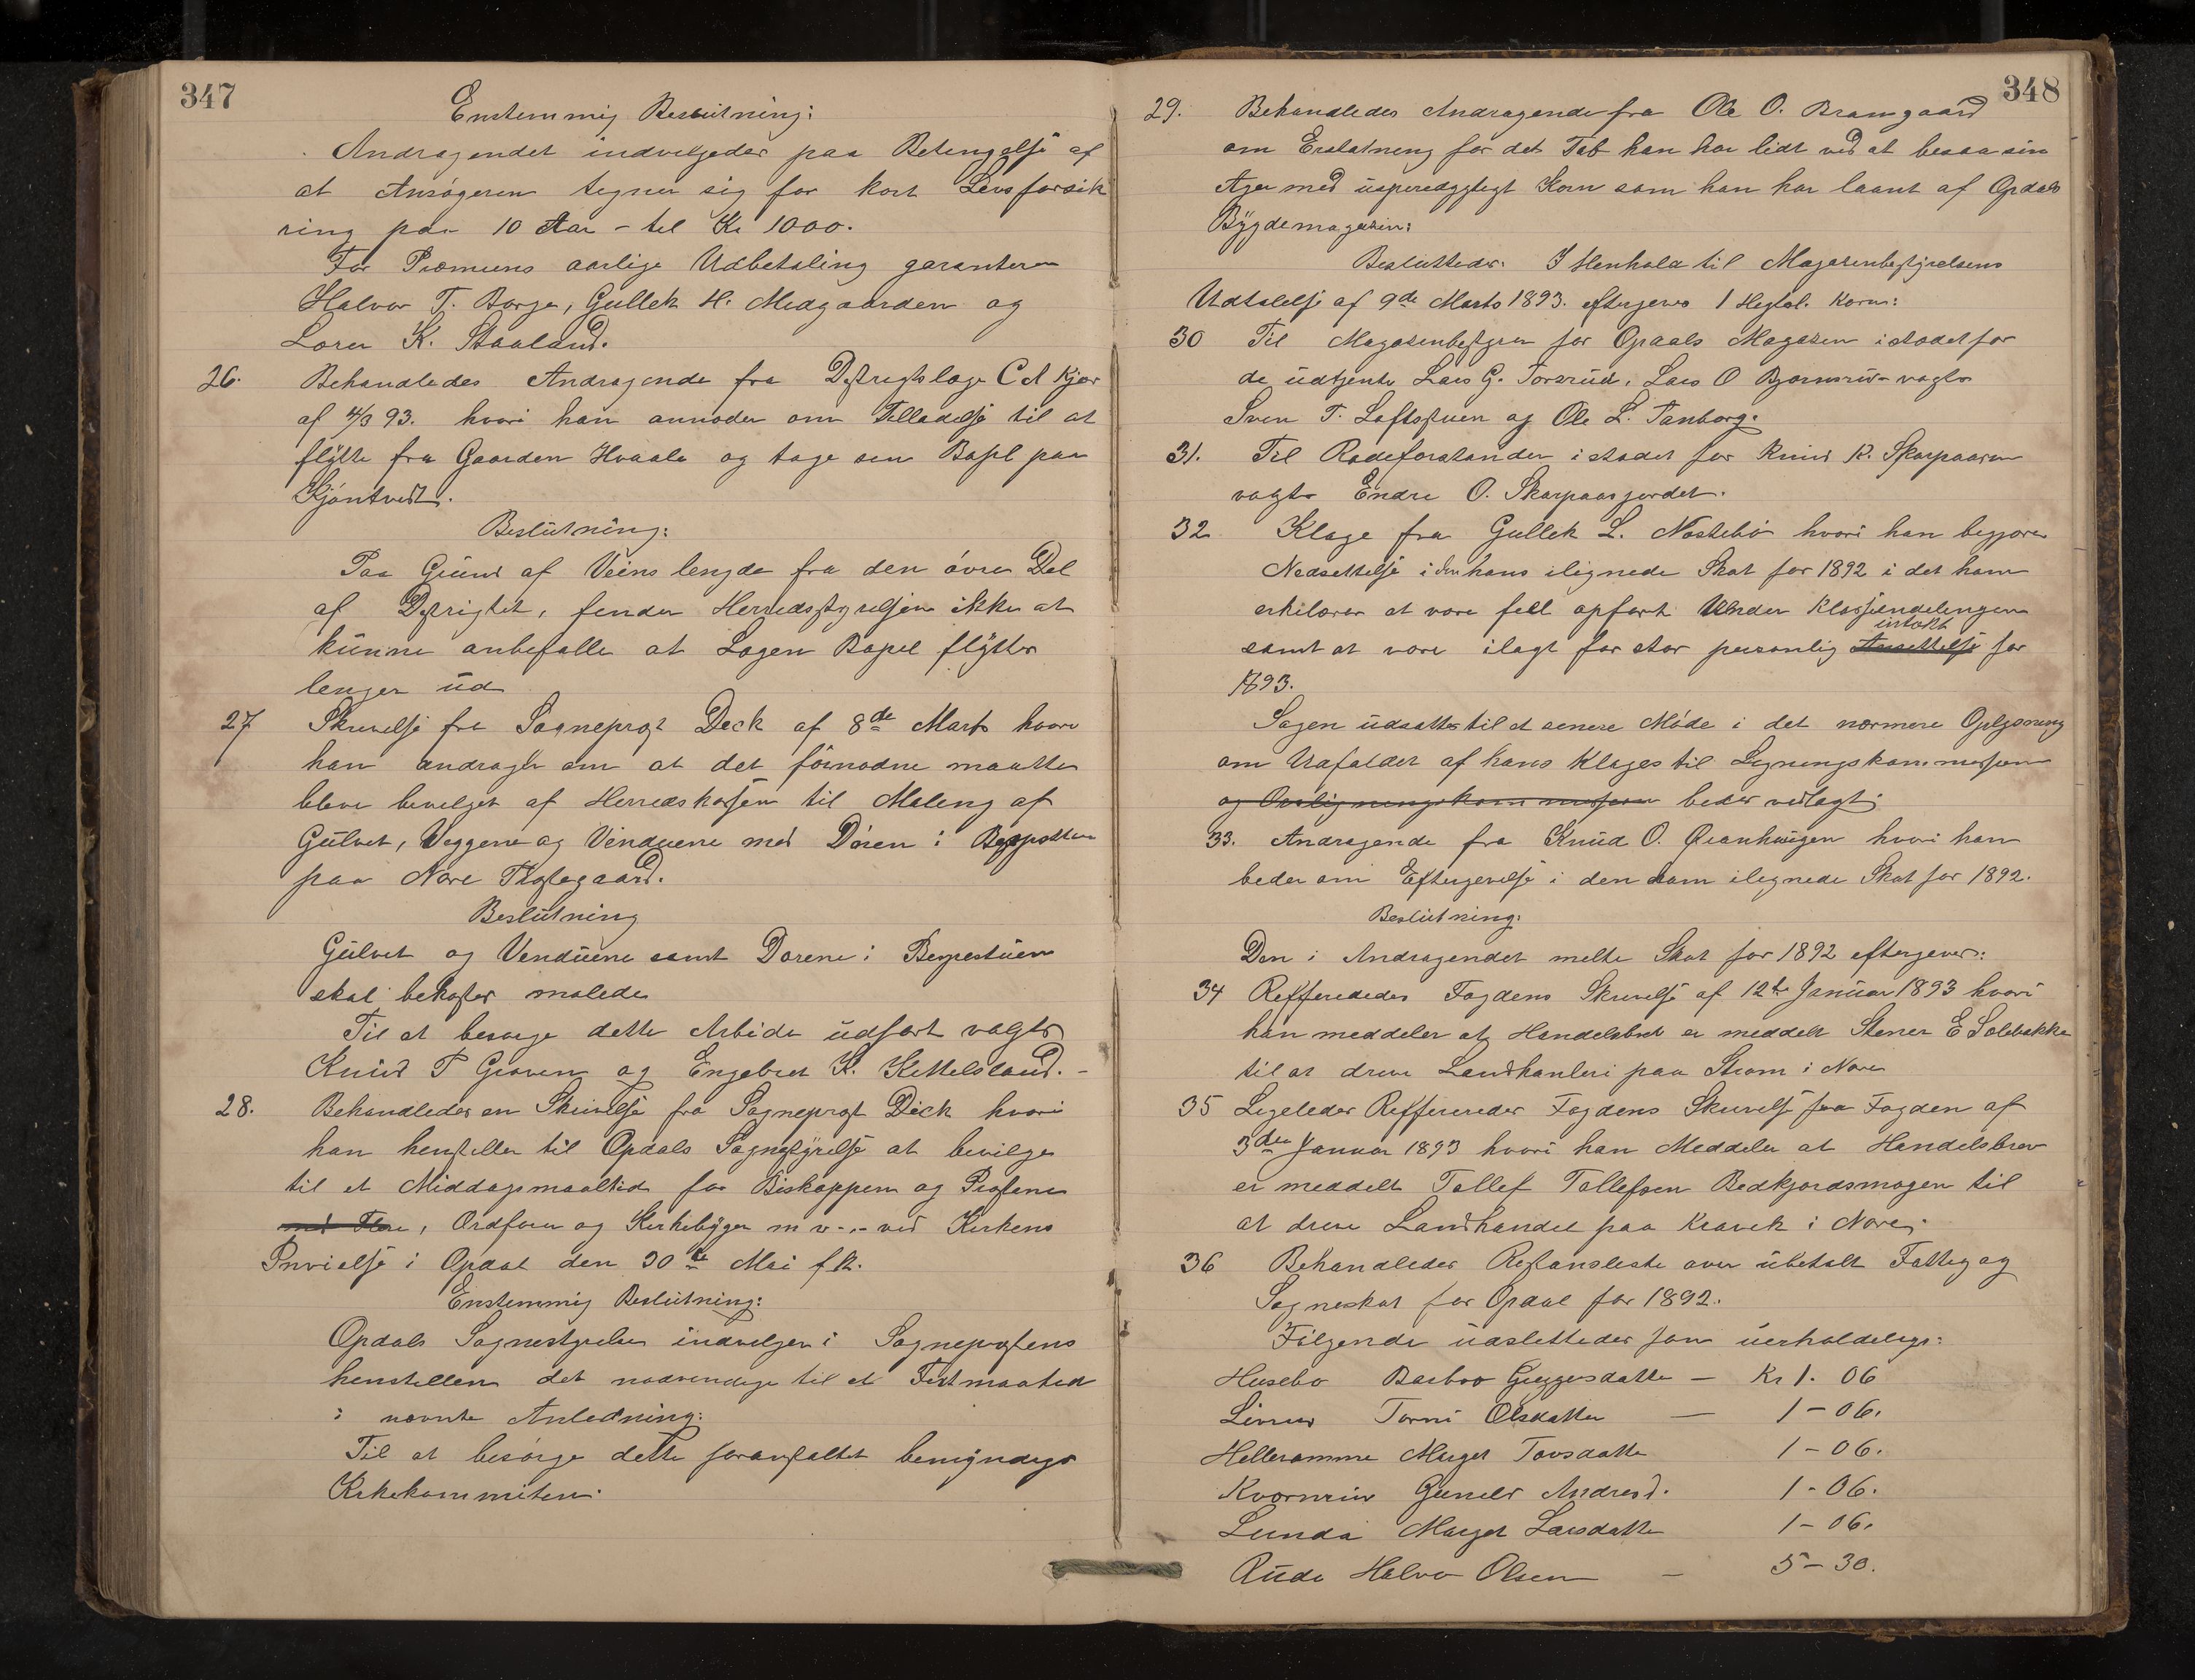 347
Enstemmig Beslutning:
Andragendet indvelgedes paa Betingelse af
at Ansøgeren tegner sig for kort Levsforsik
ring paa 10 Aar - til Kr 1000.
For Præmiens aarlige Udbetaling garanterer
Halvor T. Borge, Gullek H. Medgaarden og
Lorer K. Staaland.
26. Behandledes Andragende fra Destrigtslæge C A Kjær
af 4/3 93. hvori han anmoder om Telladelse til at
flÿtte fra Gaarden Hvaale og tage sin Bopel paa
Kjøntvedt.
Beslutning:
Paa Grund af Veins lengde fra den øvre Del
af Destrigtet, fender Herredsstyrelsen ikke at
kunne anbefalle at Lægen Bopel flÿttes
lenger ud
27 Skrivelse fra Sogneprest Deck af 8de Marts hvori
han andrager om at det fornødne maatte
bleve bevelget af Herredskassen til Maleng af
Gulvet, Veggene og Venduene med Døren i
paa Nore Prestegaard.
Beslutning
Gulvet og Venduene samt Dørene i Bespestuen
skal bekostes malede
Til at besørge dette Arbide udført valgtes
Knud T Groven og Engebret K. Kittelsland. -
28. Behandledes en Skrivelse fra Sogneprest Deck hvori
han henstiller til Opdals Sognestÿrelse at bevilge
til et Middagsmaaltid for Biskoppen og Prestene
med Flere, Ordfører og Kirkebÿger m v. . - ved Kirkens
Invielse i Opdal den 30te Mai f k.
Enstemmig Beslutning:
Opdals Sognestyrelse indvelger i Sogneprestens
henstillen det nødvendige til et Festmaaltid
i nævnte Anledning:
Til at besørge dette foranstaltet bemÿndiges
Kirkekommiteen.
348
29. Behandledes Andragende fra Ole O. Bramgaard
om Erstatneng for det Tab han har lidt ved at besaa sin
Ager med uspiredygtigt Korn som han har laant af Opdals
Bÿgdemagasin:
Besluttedes. I Henhold til Magasenbestyrelsens
Udtalelse af 9de Marts 1893. eftergeves 1 Hegtol. Korn:
30 Til Magasenbestyrer for Opdals Magasen istadet for
de udtjente Lars G. Torsrud, Lars O Bjørnsrud - valgtes
Sven T. Loftstuen og Ole L. Tanborg.
31. Til Rodeforstander istadet for Knud K. Skarpaasen
valgtes Endre O. Skarpaasjordet.
32 Klage fra Gullek L. Nøstebø hvori han begjærer
Nedsettelse i den hans ilignede Skat for 1892 i det han
erklærer at være feil opført Under Klasseendelingen
samt at være ilagt for stor personlig Ansettelse indtekt for
1893.
Sagen udsattes til et senere Møde i det nærmere Oplysning
om Udfaldet af hans Klages til Legningskommessionen
og Overligningskommessionen bedes vedlagt.
33. Andragende fra Knud O. Granhaugen hvori han
beder om Eftergevelse i den ham ilegnede Skat for 1892.
Beslutning:
Den i Andragendet melte Skat for 1892 eftergeves:
34 Reffereredes Fogdens Skrivelse af 12te Januar 1893 hvori
han meddeler at Handelsbrev er meddelt Stener E Solebakke
til at dreve Landhanleri paa Strøm i Nore
35 Legeledes Reffereredes Fogdens Skrivelse fra Fogden af
3die Januar 1893 hvori han Meddeler at Handelsbrev
er meddelt Tollef Tollefsen Bedkjordsmogen til
at dreve Landhandel paa Kravek i Nore.
36 Behandledes Restansleste over ubetalt Fatteg og
Sogneskat for Opdal for 1892.
Følgende udslettedes som uerholdelige:
Husebø Barbro Greggersdatter - Kr 1. 06
Liverud Torni Olsdatter - 1 - 06.
Helleramme Margit Tovsdatter 1 - 06.
Kværnrud Gunild Andresd. 1 - 06.
Lunda Margit Larsdatter 1 - 06.
Rude Halvor Olsen - 5 - 30.